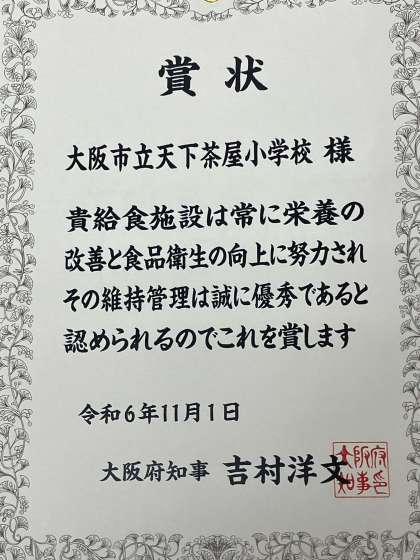 賞状
大阪市立天下茶屋小学校 様
貴給食施設は常に栄養の
改善と食品衛生の向上に努力され
その維持管理は誠に優秀であると
認められるのでこれを賞します
令和6年11月1日
大阪府知事 吉村洋文
大阪府
知事印